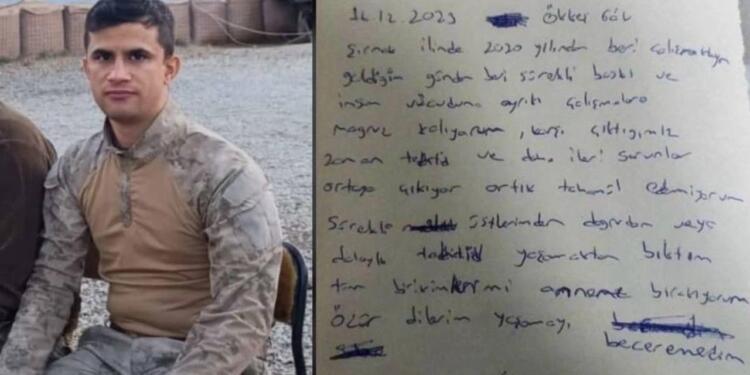 14.12.2023 Ökkeş Göl
Şırnak ilinde 2020 yılından beri çalışmaktayım
geldiğim günden beri sürekli baskı ve
insan vücuduna aykırı çalışmalara
maruz kalıyorum, karşı çıktığımız
zaman tehdid ve daha ileri sorunlar
ortaya çıkıyor artık tahamül edemiyorum
Sürekli üstlerimden doğrudan veya
dolaylı tehdid yaşamaktan bıktım
tüm birikimlerimi anneme bırakıyorum
Özür dilerim yaşamayı
beceremedim